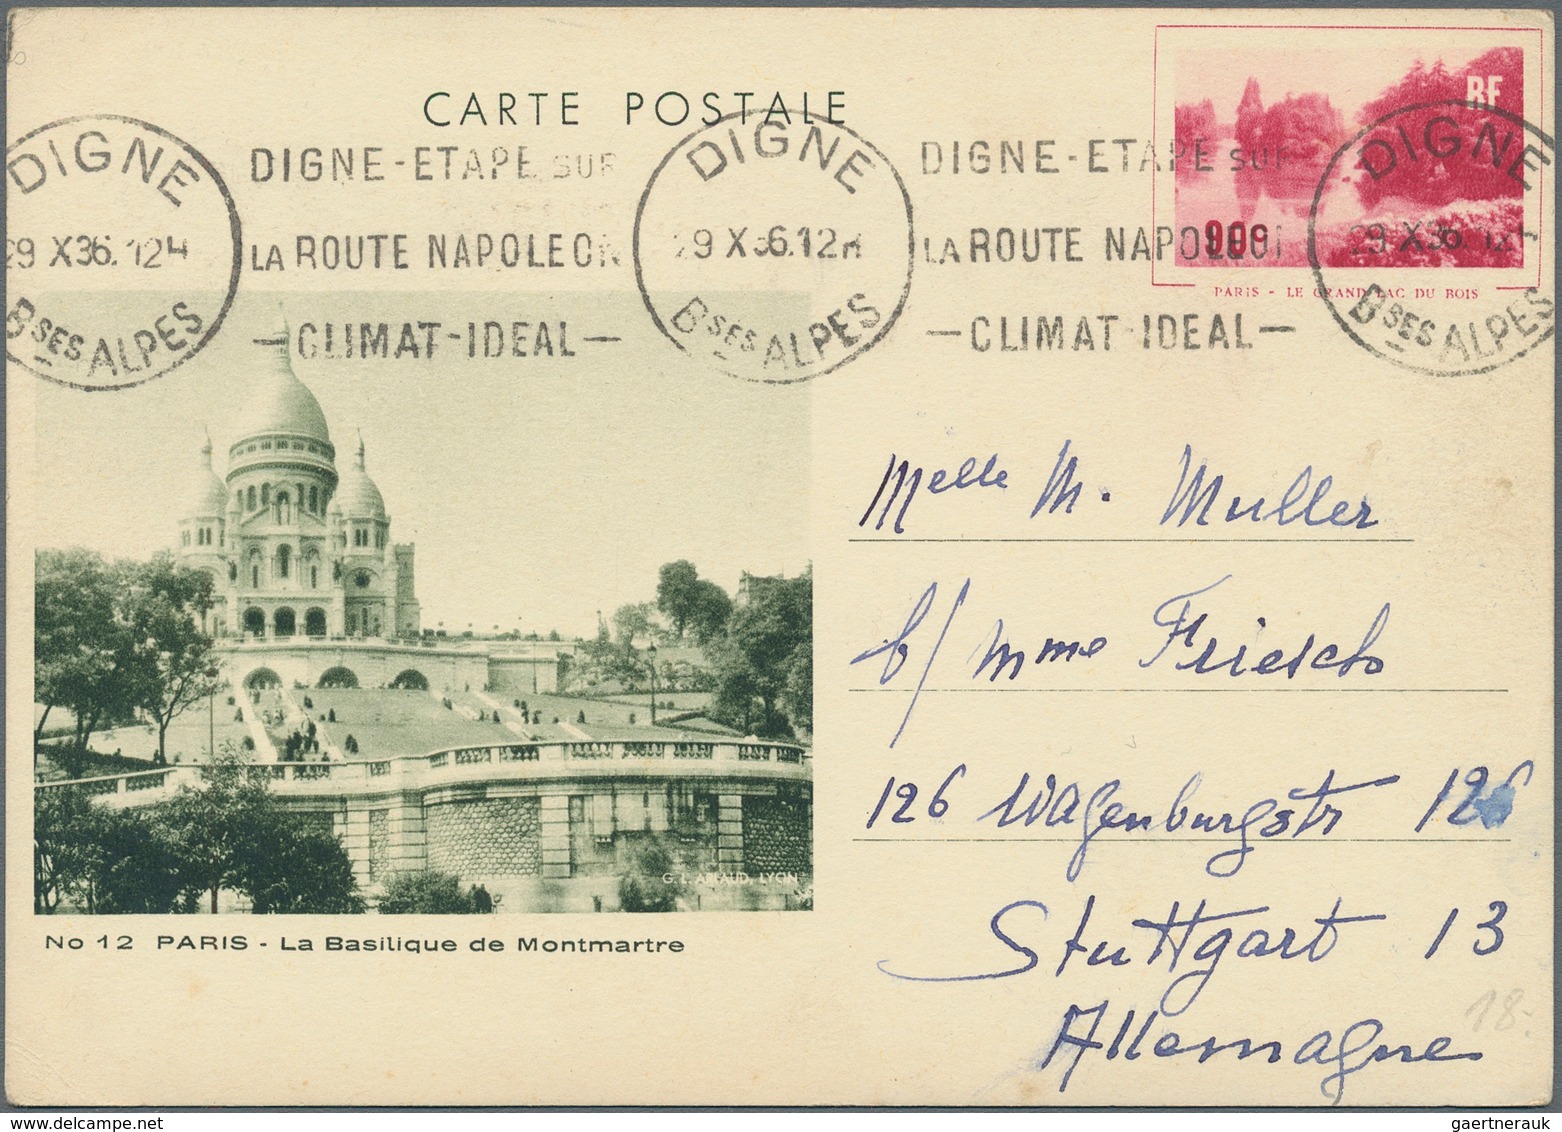 CARTE POSTALE
RF
DIGNE
29 X36.12H
Bses ALPES
DIGNE-ETAPE SUR
LA ROUTE NAPOLEON
—CLIMAT-IDEAL—
DIGNE
29 X 36.12H
Bses ALPES
DIGNE-ETAPE SUR
LA ROUTE NAPOLEON
—CLIMAT-IDEAL—
DIGNE
29 X 36.12
Bses ALPES
90c
PARIS - LE GRAND LAC DU BOIS
Melle M. Muller
b/ Mme Friesch
126 Wagenburgstr 126
Stuttgart 13
Allemagne
18.-
G. L. ARLAUD, LYON
No 12 PARIS - La Basilique de Montmartre
gaertnerauk @ delcampe.net